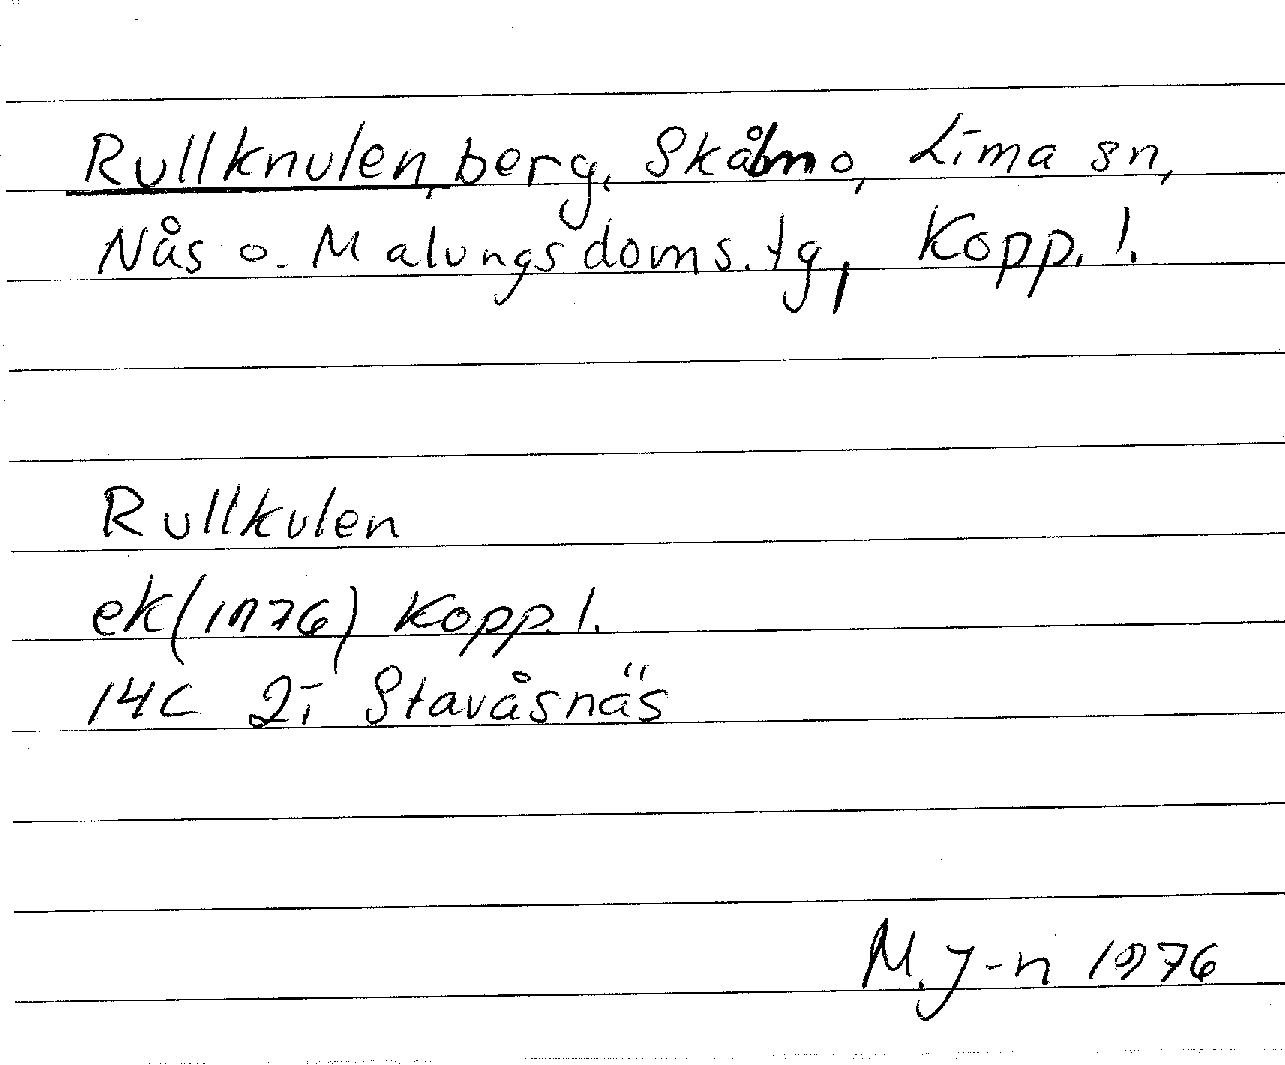 Rullknulen, berg, Skålmo, Lima sn,
Nås o. Malungs doms. tg, Kopp. l.
Rullkulen
ek (1976) Kopp. l.
14C 2i Stavåsnäs
M. J-n 1976